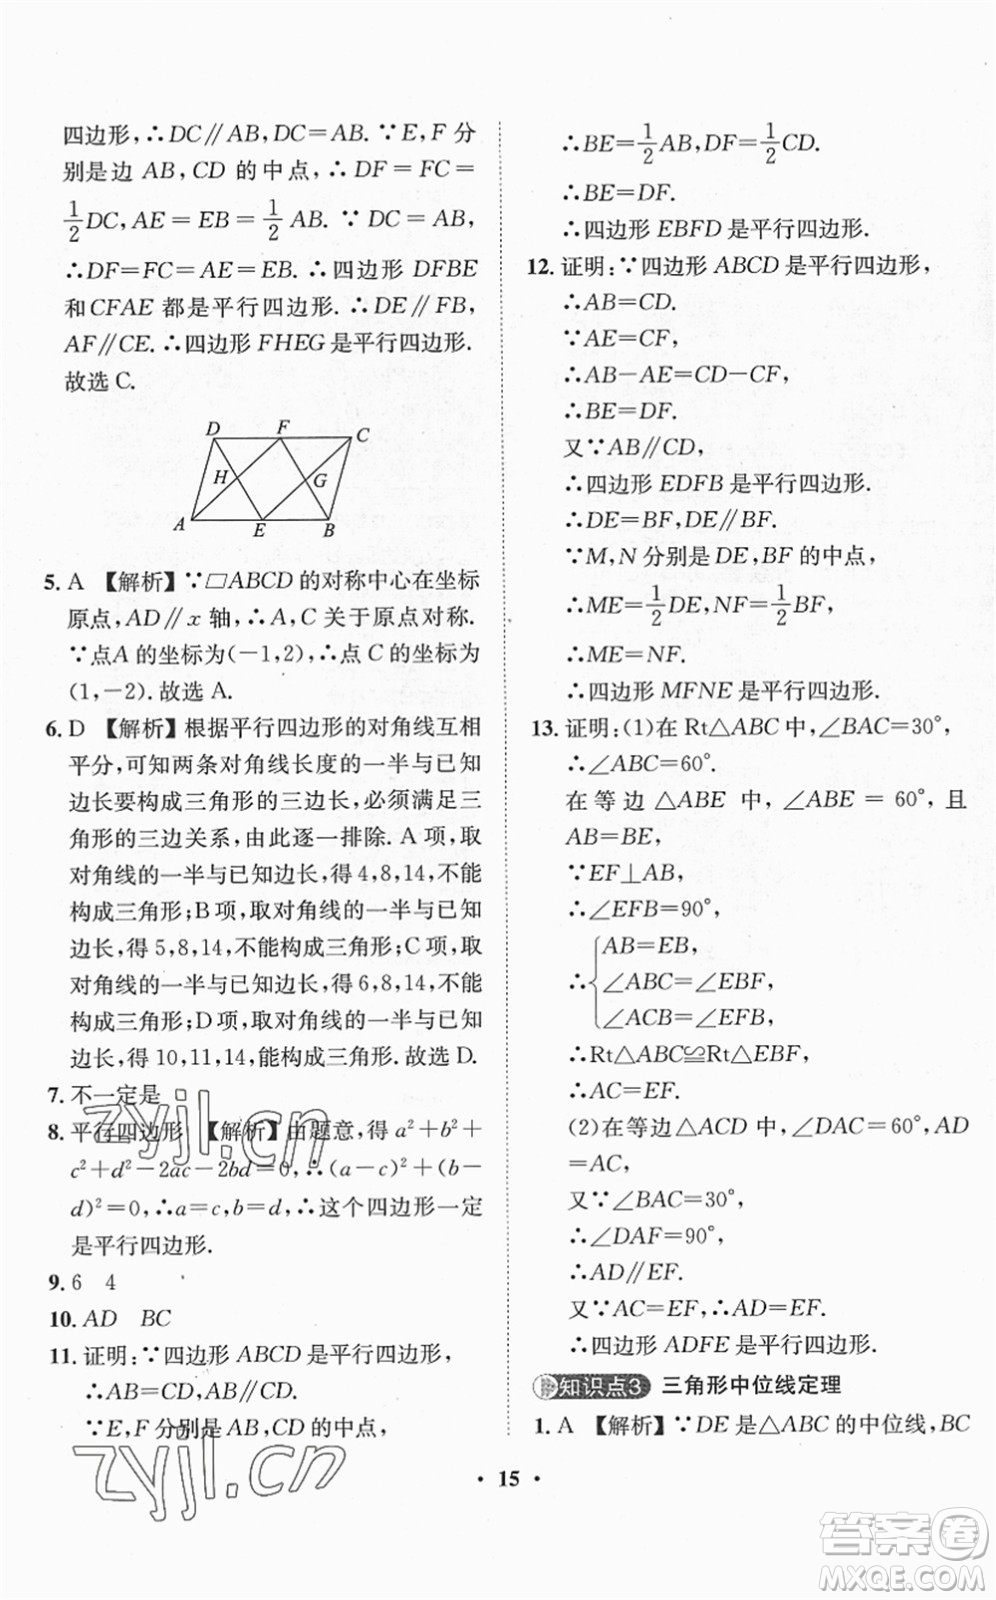 四边形,∴DC∥AB,DC=AB. ∵E,F 分
别是边 AB,CD 的中点,∴DF=FC=
1/2DC,AE=EB=1/2AB. ∵DC=AB,
∴DF=FC=AE=EB. ∴四边形 DFBE
和CFAE 都是平行四边形. ∴DE∥FB,
AF∥CE. ∴四边形 FHEG 是平行四边形.
故选 C.
D F C
H G
A E B
5. A 【解析】∵▱ABCD 的对称中心在坐标
原点,AD∥x 轴,∴A,C 关于原点对称.
∵点A 的坐标为(-1,2),∴点 C 的坐标为
(1,-2). 故选 A.
6. D 【解析】根据平行四边形的对角线互相
平分,可知两条对角线长度的一半与已知
边长要构成三角形的三边长,必须满足三
角形的三边关系,由此逐一排除. A 项,取
对角线的一半与已知边长,得 4,8,14,不能
构成三角形;B 项,取对角线的一半与已知
边长,得 5,8,14,不能构成三角形;C 项,取
对角线的一半与已知边长,得 6,8,14,不能
构成三角形;D 项,取对角线的一半与已知
边长,得 10,11,14,能构成三角形. 故选 D.
7. 不一定是
8. 平行四边形 【解析】由题意,得 a²+b²+
c²+d²-2ac-2bd=0,∴(a-c)²+(b-
d)²=0,∴a=c,b=d,∴这个四边形一定
是平行四边形.
9. 6 4
10. AD BC
11. 证明:∵四边形 ABCD 是平行四边形,
∴AB=CD,AB∥CD.
∵E,F 分别是 AB,CD 的中点,
∴BE=1/2AB,DF=1/2CD.
∴BE=DF.
∴四边形 EBFD 是平行四边形.
12. 证明:∵四边形 ABCD 是平行四边形,
∴AB=CD.
∵AE=CF,
∴AB-AE=CD-CF,
∴BE=DF.
又∵AB∥CD,
∴四边形 EDFB 是平行四边形.
∴DE=BF,DE∥BF.
∵M,N 分别是 DE,BF 的中点,
∴ME=1/2DE,NF=1/2BF,
∴ME=NF.
∴四边形 MFNE 是平行四边形.
13. 证明:(1)在 Rt△ABC 中,∠BAC=30°,
∴∠ABC=60°.
在等边 △ABE 中,∠ABE=60°,且
AB=BE,
∵EF⊥AB,
∴∠EFB=90°,
AB=EB,
∴{∠ABC=∠EBF,
∠ACB=∠EFB,
∴Rt△ABC≌Rt△EBF,
∴AC=EF.
(2)在等边△ACD 中,∠DAC=60°,AD
=AC,
又∵∠BAC=30°,
∴∠DAF=90°,
∴AD∥EF.
又∵AC=EF,∴AD=EF.
∴四边形 ADFE 是平行四边形.
知识点3 三角形中位线定理
1. A 【解析】∵DE 是△ABC 的中位线,BC
• 15 •
zyjl.cn
zyjl.cn
答案卷
MXQE.COM